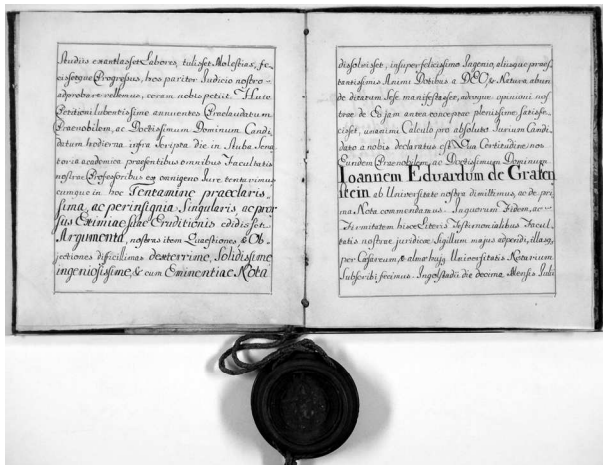 Studiis exantlasset Labores, tulisset Molestias, fe,
cissetque Progressus, hos pariter Judicio nostro
adprobare vellemus, coram nobis petiit. Huic
Petitioni lubentissime annuentes Praelaudatum
Praenobilem, ac Doctissimum Dominum Candi,
datum hodierna infra scripta die in Stuba Sena,
toria academica praesentibus omnibus Facultatis
nostrae Professoribus ex omnigeno Jure tentarimus
cumque in hoc Tentamine praeclaris,
sima, ac perinsignia Singularis, ac pror
sus Eximiae suae Eruditionis edidisset
Argumenta, nostras item Quaestiones & Ob,
jectiones difficillimas dexterrime, Solidissime
ingeniosissime, & cum Eminentiae Nota
dissolvisset, insuper felicissimo Ingenio, aliisque praes,
tantissimis Animi Dotibus a DEO, & Natura abun
de ditatum Sese manifestasset, adeoque opinioni nos,
trae de Eo jam antea conceptae plenissime satisfe,
cisset, unanimi Calculo pro absoluto Jurium Candi,
dato a nobis declaratus est. Qua Certitudine nos
Eundem Praenobilem, ac Doctissimum Dominum
Ioannem Eduardum de Graffen
stein ab Universitate nostra dimittimus, ac de pri,
ma Nota commendamus. In quorum Fidem, ac
Firmitatem hisce Literis Testimonialibus Facul,
tatis nostrae juridicae Sigillum majus adpendi, illasq,
per Caesareum, & almae hujus Universitatis Notarium
Subscribi fecimus. Ingolstadii die decima Mensis Julii